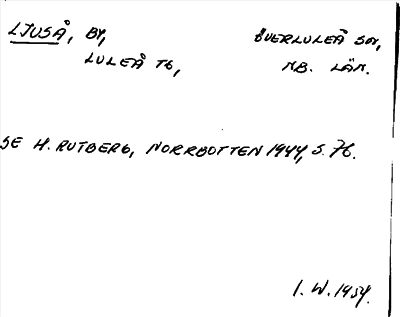 LJUSÅ, BY, ÖVERLULEÅ SN,
LULEÅ TG, NB. LÄN.
SE H. RUTBERG, NORRBOTTEN 1944, S. 76.
I. W. 1954.